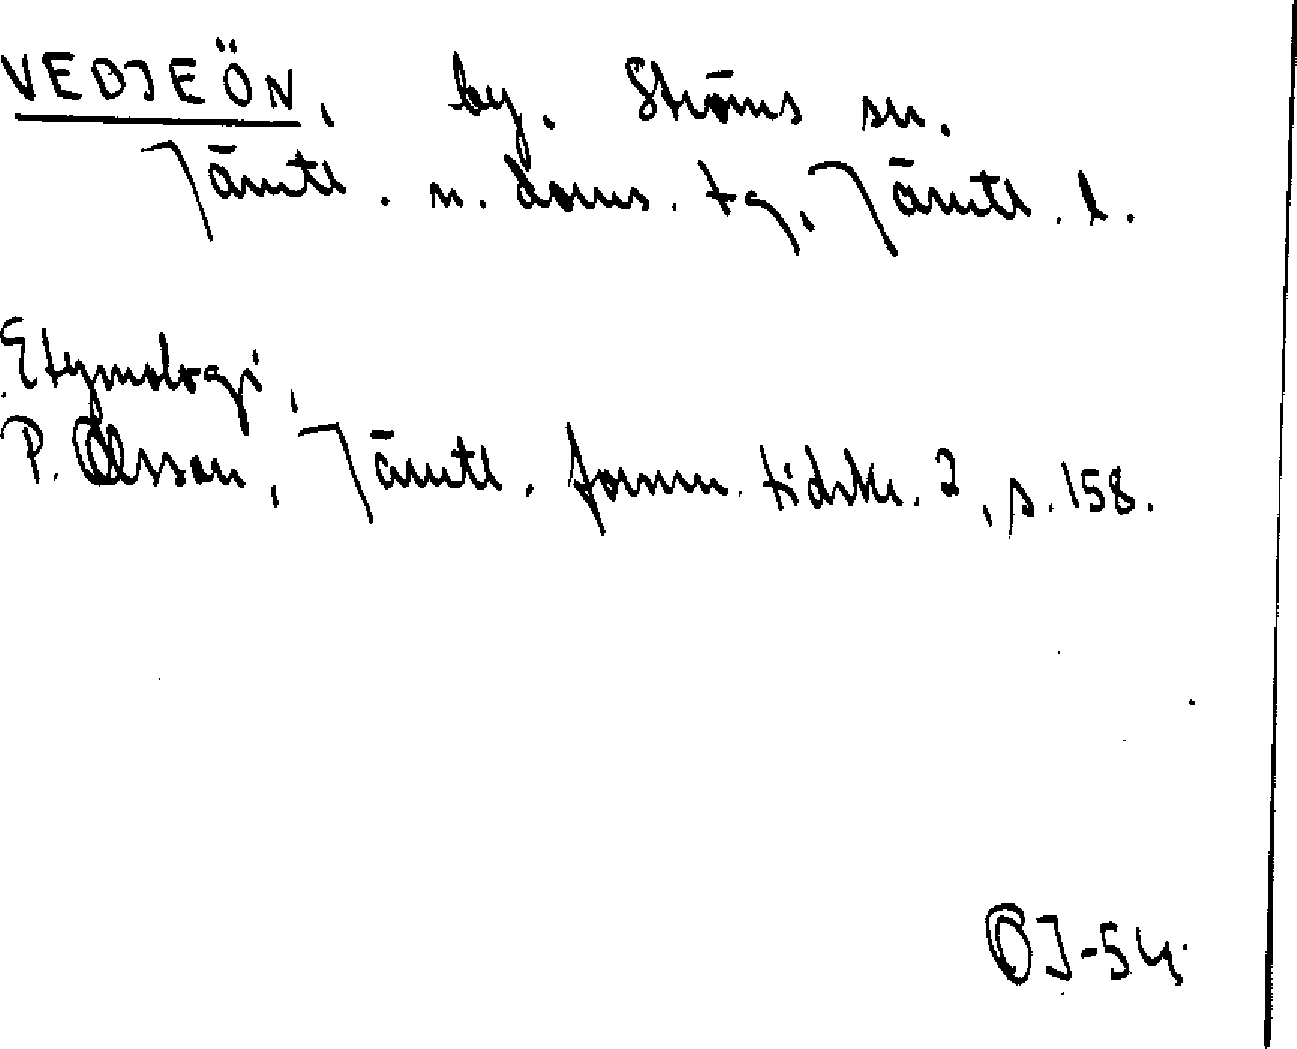 VEDJEÖN, by. Ströms sn.
Jämtl. n. doms. tg, Jämtl. l.
Etymologi,
P. Olsson, Jämtl. fornm. tidskr. 2, s. 158.
OJ-54